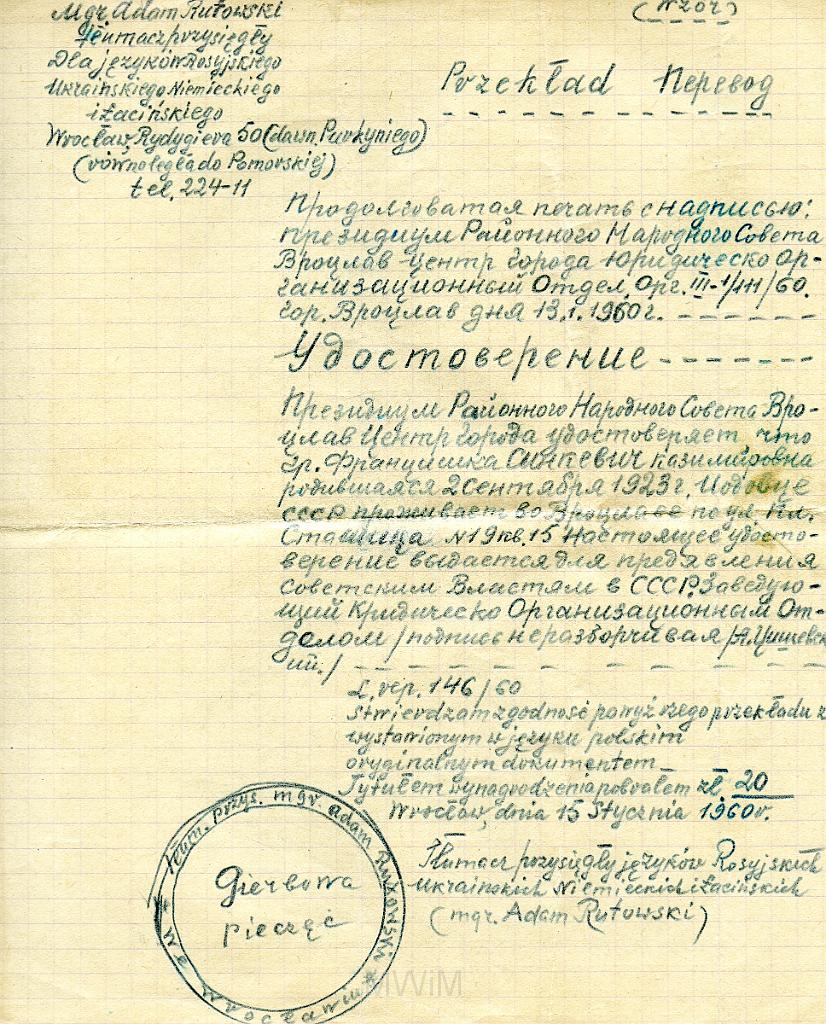 (Wzór)
Mgr. Adam Rutowski
Tłumacz przysięgły
Dla języków Rosyjskiego
Ukraińskiego Niemieckiego
i Łacińskiego
Wrocław, Rydygiera 50 (dawn. Purkyniego)
(równoległa do Pomorskiej)
tel. 224-11
Przekład Перевод
Продолговатая печать с надписью:
президиум Районного Народного Совета
Вроцлав-центр города Юридическо Ор-
ганизационный Отдел. Орг. III-1/111/60.
гор. Вроцлав дня 13.1.1960 г.
Удостоверение
Президиум Районного Народного Совета Вро-
цлав Центр города удостоверяет что
гр. Францишка Синкевич Казимировна
родившаяся 2 Сентября 1923 г.
СССР проживает во Вроцлаве по ул. Пл.
Сташица N 19 кв. 15 Настоящее удосто-
верение выдается для предявления
Советским Властям в СССР. Заведую-
щий Юридическо Организационным От-
делом /подпись неразборчивая /А. Цишевск
ий./
L. rep. 146/60
Stwierdzam zgodność powyższego przekładu z
wystawionym w języku polskim
oryginalnym dokumentem
Tytułem wynagrodzenia pobrałem zł 20
Wrocław, dnia 15 Stycznia 1960 r.
Tłumacz przysięgły języków Rosyjskich
Ukraińskich Niemieckich i Łacińskich
(mgr. Adam Rutowski)
Tłum. przys. mgr. Adam Rutowski * we Wrocławiu *
Gierbowa
pieczęć
MWiM